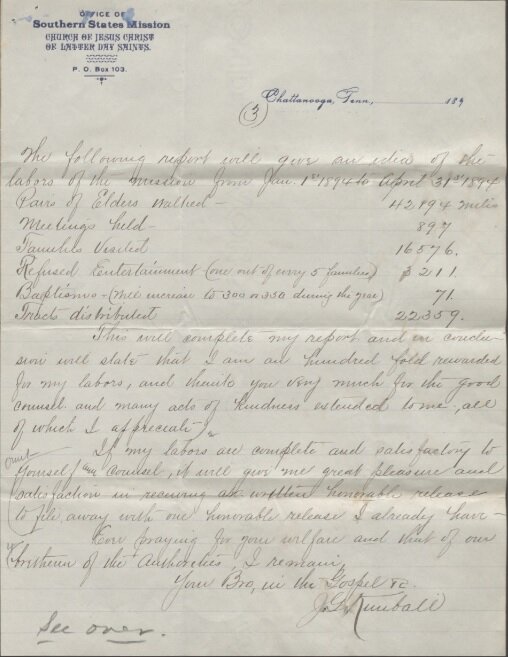 OFFICE OF
Southern States Mission
CHURCH OF JESUS CHRIST
OF LATTER DAY SAINTS.
P. O. Box 103.
Chattanooga, Tenn, 189
(3)
The following report will give an idea of the
labors of the mission from Jan. 1st 1894 to April 31st 1894
Pairs of Elders walked— 42894 miles
Meetings held— 897
Families Visited 16576.
Refused Entertainment (one out of every 5 families) 3211.
Baptisms—(Will increase to 300 or 350 during the year) 71.
Tracts distributed 22359.
This will complete my report and in conclu-
sion will state that I am an hundred fold rewarded
for my labors, and thank you very much for the good
counsel and many acts of kindness extended to me, all
of which I appreciate
If my labors are complete and satisfactory to
yourself and counsel, it will give me great pleasure and
satisfaction in receiving a written honorable release
to file away with one honorable release I already have—
Ever praying for your welfare and that of our
brethren of the Authorities, I remain,
Your Bro, in the Gospel &c.
J. G. Kimball
See over.